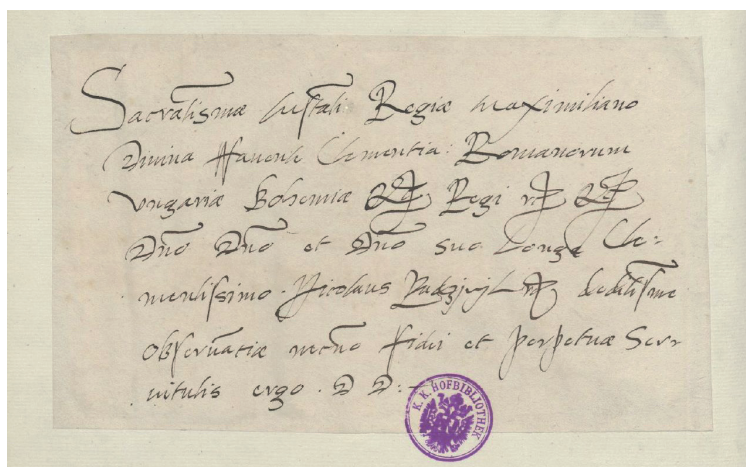 Sacratissimæ Mestati Regiæ Maximiliano
Divina ffavente Clementia Romanorum
Ungariæ Bohemiæ Regi
Dno Dno et Dno suo Longe Cle:
mentissimo. Nicolaus Radzivil deditissimæ
Observatiæ necno ffidei et perpetuæ Ser
vitutis ergo. D D:-
K. K. HOFBIBLIOTHEK